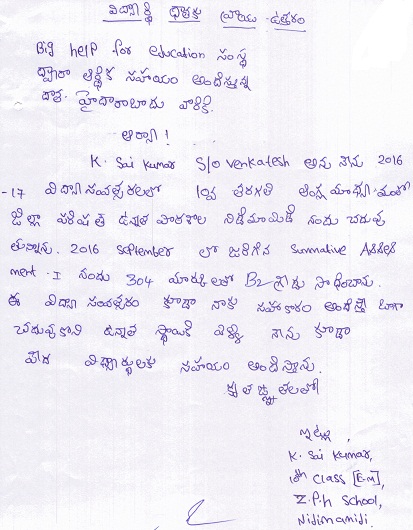 విద్యార్థి దాతకు వ్రాయు ఉత్తరం
Big help for education సంస్థ
ద్వారా ఆర్థిక సహాయం అందిస్తున్న
దాత హైదారాబాదు వారికి.
ఆర్యా!
K. Sai Kumar S/o Venkatesh అను నేను 2016
-17 విద్యాసంవత్సరంలో 10వ తరగతి ఆంగ్ల మాధ్యమంతో
జిల్లా పరిషత్ ఉన్నత పాఠశాల నిడిమామిడి నందు చదువు
తున్నాను. 2016 September లో జరిగిన Summative Assess
ment - I నందు 304 మార్కులతో B2 గ్రేడు సాధించాను.
ఈ విద్యా సంవత్సరం కూడా నాకు సహకారం అందిస్తే బాగా
చదువుకొని ఉన్నత స్థాయికి వెళ్ళి నేను కూడా
పేద విద్యార్థులకు సహాయం అందిస్తాను.
కృతజ్ఞతలతో
ఇట్లు,
K. Sai Kumar,
10th Class [E.M],
Z.P.H School,
Nidimamidi.